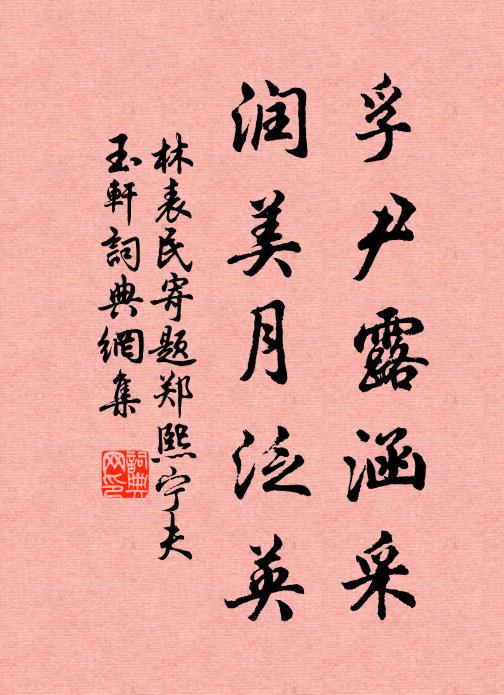 孚尹露涵采
润美月泛英
林表民寄题郑熙宁夫
玉軒詞典網集
詞典網印